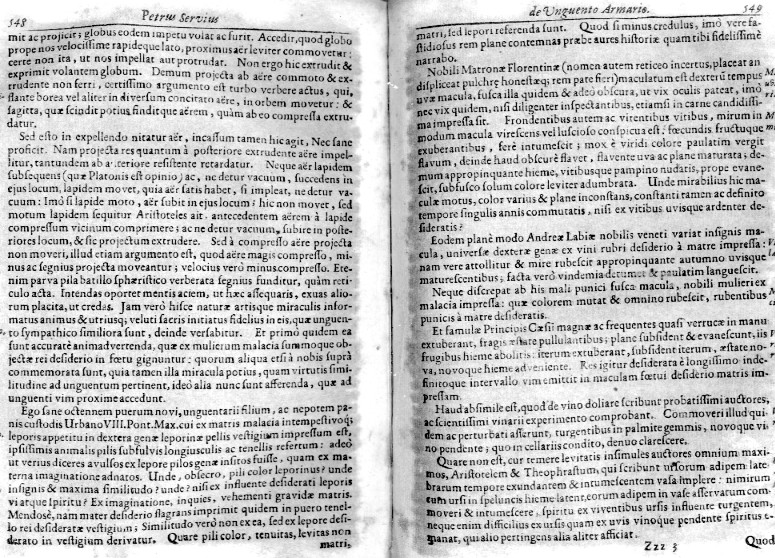 548 Petrus Servius
mit ac projicit; globus eodem impetu volat ac furit. Accedit, quod globo
prope nos velocissime rapideque lato, proximus aër leviter commovetur:
certe non ita, ut nos impellat aut protrudat. Non ergo hic extrudit &
exprimit volantem globum. Demum projecta ab aëre commoto & ex-
trudente non ferri, certissimo argumento est turbo verbere actus, qui,
flante borea vel aliter in diversum concitato aëre, in orbem movetur: &
sagitta, quæ scindit potius findit que aërem, quàm ab eo compressa extru-
datur.
Sed esto in expellendo nitatur aër, incassum tamen hic agit, Nec sane
proficit. Nam projecta res quantum à posteriore extrudente aëre impel-
litur, tantundem ab anteriore resistente retardatur. Neque aër lapidem
subsequens (quæ Platonis est opinio) ac, ne detur vacuum, succedens in
ejus locum, lapidem movet, quia aër satis habet, si impleat, ne detur va-
cuum: Imò si lapide moto, aër subit in ejus locum; hic non movet, sed
motum lapidem sequitur Aristoteles ait. antecedentem aërem à lapide
compressum vicinum comprimere; ac ne detur vacuum, subire in poste-
riores locum, & sic projectum extrudere. Sed à compresso aëre projecta
non moveri, illud etiam argumento est, quod aëre magis compresso, mi-
nus ac segnius projecta moveantur; velocius verò minus compresso. Ete-
nim parva pila batillo sphæristico verberata segnius funditur, quàm reti-
culo acta. Intendas oportet mentis aciem, ut hæc assequaris, exuas alio-
rum placita, ut credas. Jam verò hisce naturæ artisque miraculis infor-
matus animus & utriusq; veluti sacris initiatus fidelius in eis, quæ unguen-
to sympathico similiora sunt, deinde versabitur. Et primò quidem ea
sunt accuratè animadvertenda, quæ ex mulierum malacia summoque ob-
jectæ rei desiderio in fœtu gignuntur: quorum aliqua etsi à nobis suprà
commemorata sunt, quia tamen illa miracula potius, quam virtutis simi-
litudine ad unguentum pertinent, ideò alia nunc sunt afferenda, quæ ad
unguenti vim proxime accedunt.
Ego sane octennem puerum novi, unguentarii filium, ac nepotem pa-
nis custodis Urbano VIII. Pont. Max. cui ex matris malacia intempestivoq;
leporis appetitu in dextera genâ leporinæ pellis vestigium impressum est,
ipsissimis animalis pilis subfulvis longiusculis ac tenellis refertum: adeò
ut verius diceres avulsos ex lepore pilos genæ insitos fuisse, quam ex ma-
terna imaginatione adnatos. Unde, obsecro, pili color leporinus? unde
insignis & maxima similitudo? unde? nisi ex influente desiderati leporis
vi atque spiritu? Ex imaginatione, inquies, vehementi gravidæ matris.
Mendosè, nam mater desiderio flagrans imprimit quidem in puero tenel-
lo rei desideratæ vestigium; Similitudo verò non ex ea, sed ex lepore desi-
derato in vestigium derivatur. Quare pili color, tenuitas, levitas non
matri,
de Unguento Armario. 549
matri, sed lepori referenda sunt. Quod si minus credulus, imò vere fa-
stidiosus rem plane contemnas præbe aures historiæ quam tibi fidelissimè
narrabo.
Nobili Matronæ Florentinæ (nomen autem reticeo incertus, placeat an
displiceat pulchrę honestæq; rem pate fieri) maculatum est dexterū tempus
uvæ macula, fusca illa quidem & adeò obscura, ut vix oculis pateat, imò
nec vix quidem, nisi diligenter inspectantibus, etiamsi in carne candidissi-
ma impressa sit. Frondentibus autem ac virentibus vitibus, mirum in
modum macula virescens vel luscioso conspicua est: fœcundis fructuque
exuberantibus, ferè intumescit; mox è viridi colore paulatim vergit
flavum, deinde haud obscurè flavet, flavente uva ac plane maturata; de-
mum appropinquante hieme, vitibusque pampino nudatis, prope evane-
scit, subfusco solum colore leviter adumbrata. Unde mirabilius hic ma-
culæ motus, color varius & plane inconstans, constanti tamen ac definito
tempore singulis annis commutatis, nisi ex vitibus uvisque ardenter de-
sideratis?
Eodem planè modo Andreæ Labiæ nobilis veneti variat insignis ma-
cula, universæ dexteræ genæ ex vini rubri desiderio à matre impressa:
nam vere attollitur & mire rubescit appropinquante autumno uvisque
maturescentibus; facta verò vindemia detumet & paulatim languescit.
Neque discrepat ab his mali punici fusca macula, nobili mulieri ex
malacia impressa: quæ colorem mutat & omnino rubescit, rubentibus
punicis à matre desideratis.
Et famulæ Principis Cæsii magnæ ac frequentes quasi verrucæ in manu
extuberant, fragis æstate pullulantibus; plane subsident & evanescunt, iis
frugibus hieme abolitis: iterum extuberant, subsident iterum, æstate no-
va, novoque hieme adveniente. Res igitur desiderata è longissimo inde-
finitoque intervallo vim emittit in maculam fœtui desiderio matris im-
pressam.
Haud absimile est, quod de vino doliare scribunt probatissimi auctores,
ac scientissimi vinarii experimento comprobant. Commoveri illud qui-
dem ac perturbati asserunt, turgentibus in palmite gemmis, novoque vi-
no pendente; quo in cellariis condito, denuo clarescere.
Quare non est, cur temere levitatis insimules auctores omnium maxi-
mos, Aristotelem & Theophrastum, qui scribunt ursorum adipem late-
brarum tempore exundantem & intumescentem vasa implere: nimirum
cum ursi in speluncis hieme latent, eorum adipem in vase asservatum com-
moveri & intumescere, spiritu ex viventibus ursis influente turgentem,
neque enim difficilius ex ursis quam ex uvis vinoque pendente spiritus e-
manat, quo alio pertingens alia aliter afficiat.
Zzz 3 Quod